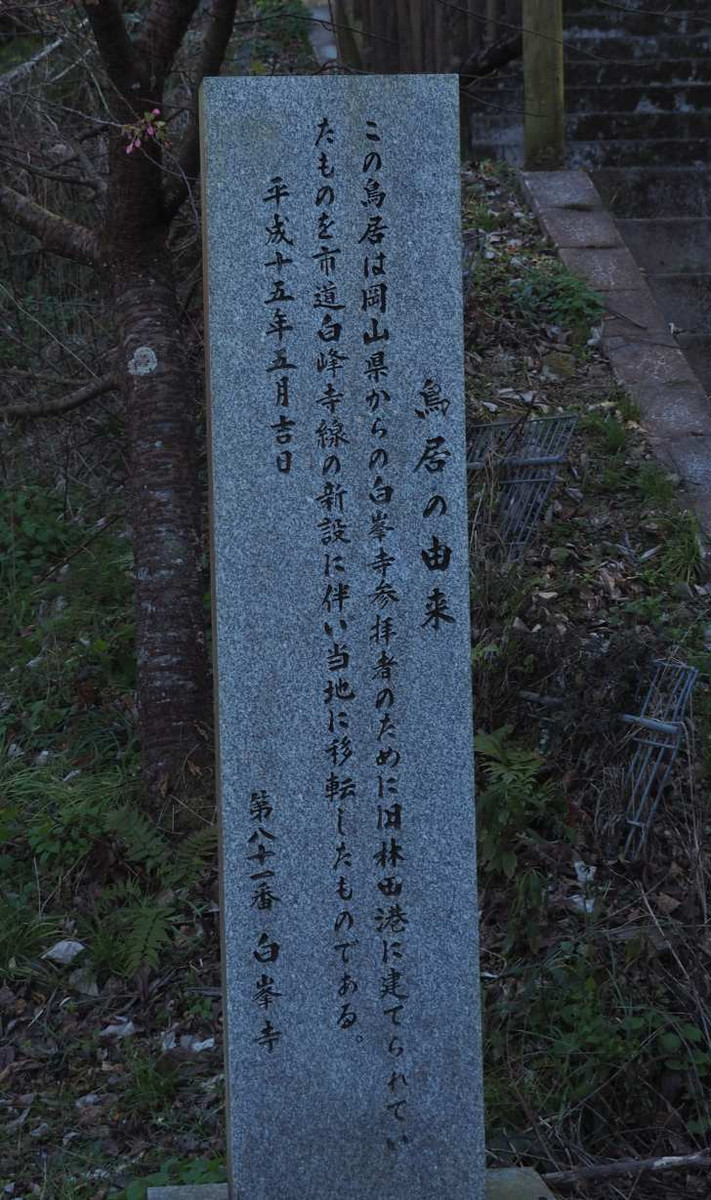 鳥居の由来
この鳥居は岡山県からの白峯寺参拝者のために旧林田港に建てられてい
たものを市道白峰寺線の新設に伴い当地に移転したものである。
平成十五年五月吉日
第八十一番 白峯寺